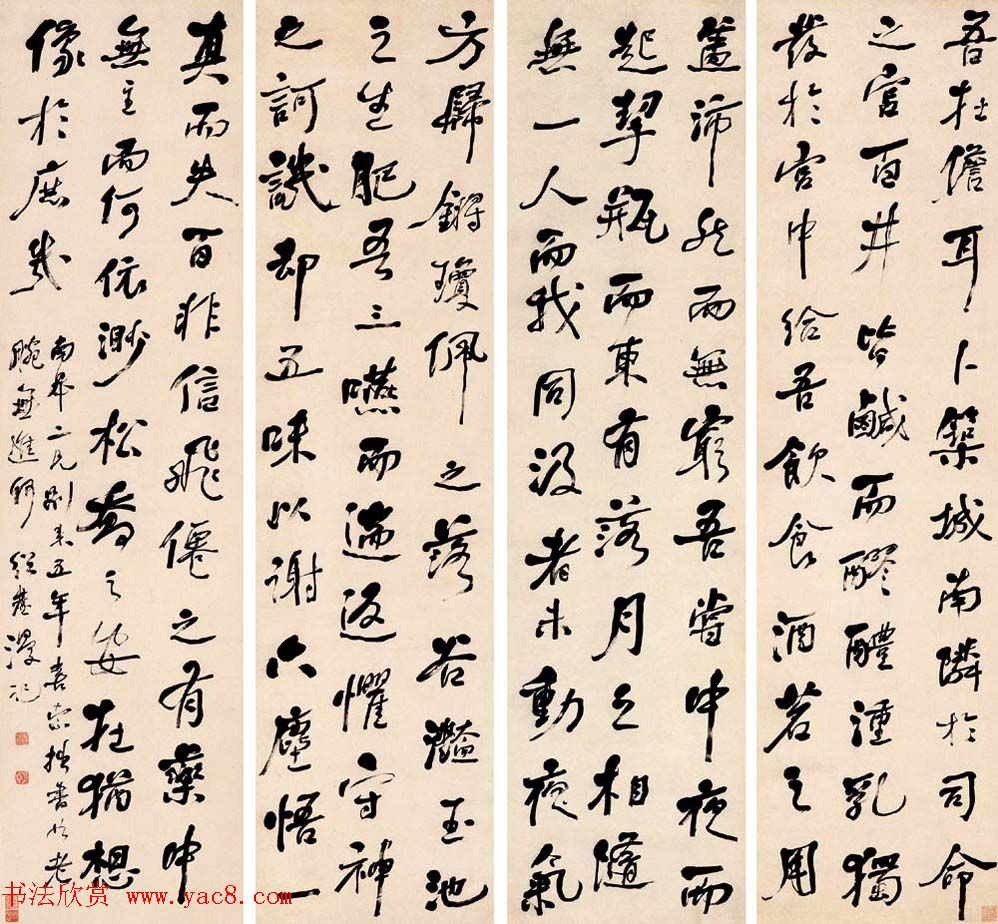 吾在儋耳卜築城南隣於司命
之宮百井皆鹹而醪醴湩乳獨
發於宮中給吾飲食酒茗之用
蓋沛然而無窮吾嘗中夜而
起挈瓶而東有落月之相隨
無一人而我同汲者未動夜氣
方歸鏘瓊佩之落谷灩玉池
之生肥吾三嚥而遄返懼守神
之訶譏却五味以謝六塵悟一
真而失百非信飛僊之有藥中
無主而何依渺松喬之安在猶想
像於庶幾
南二兄別来五年喜索拙書老
腕無進紹基漫記
书法欣赏 www.yac8.com